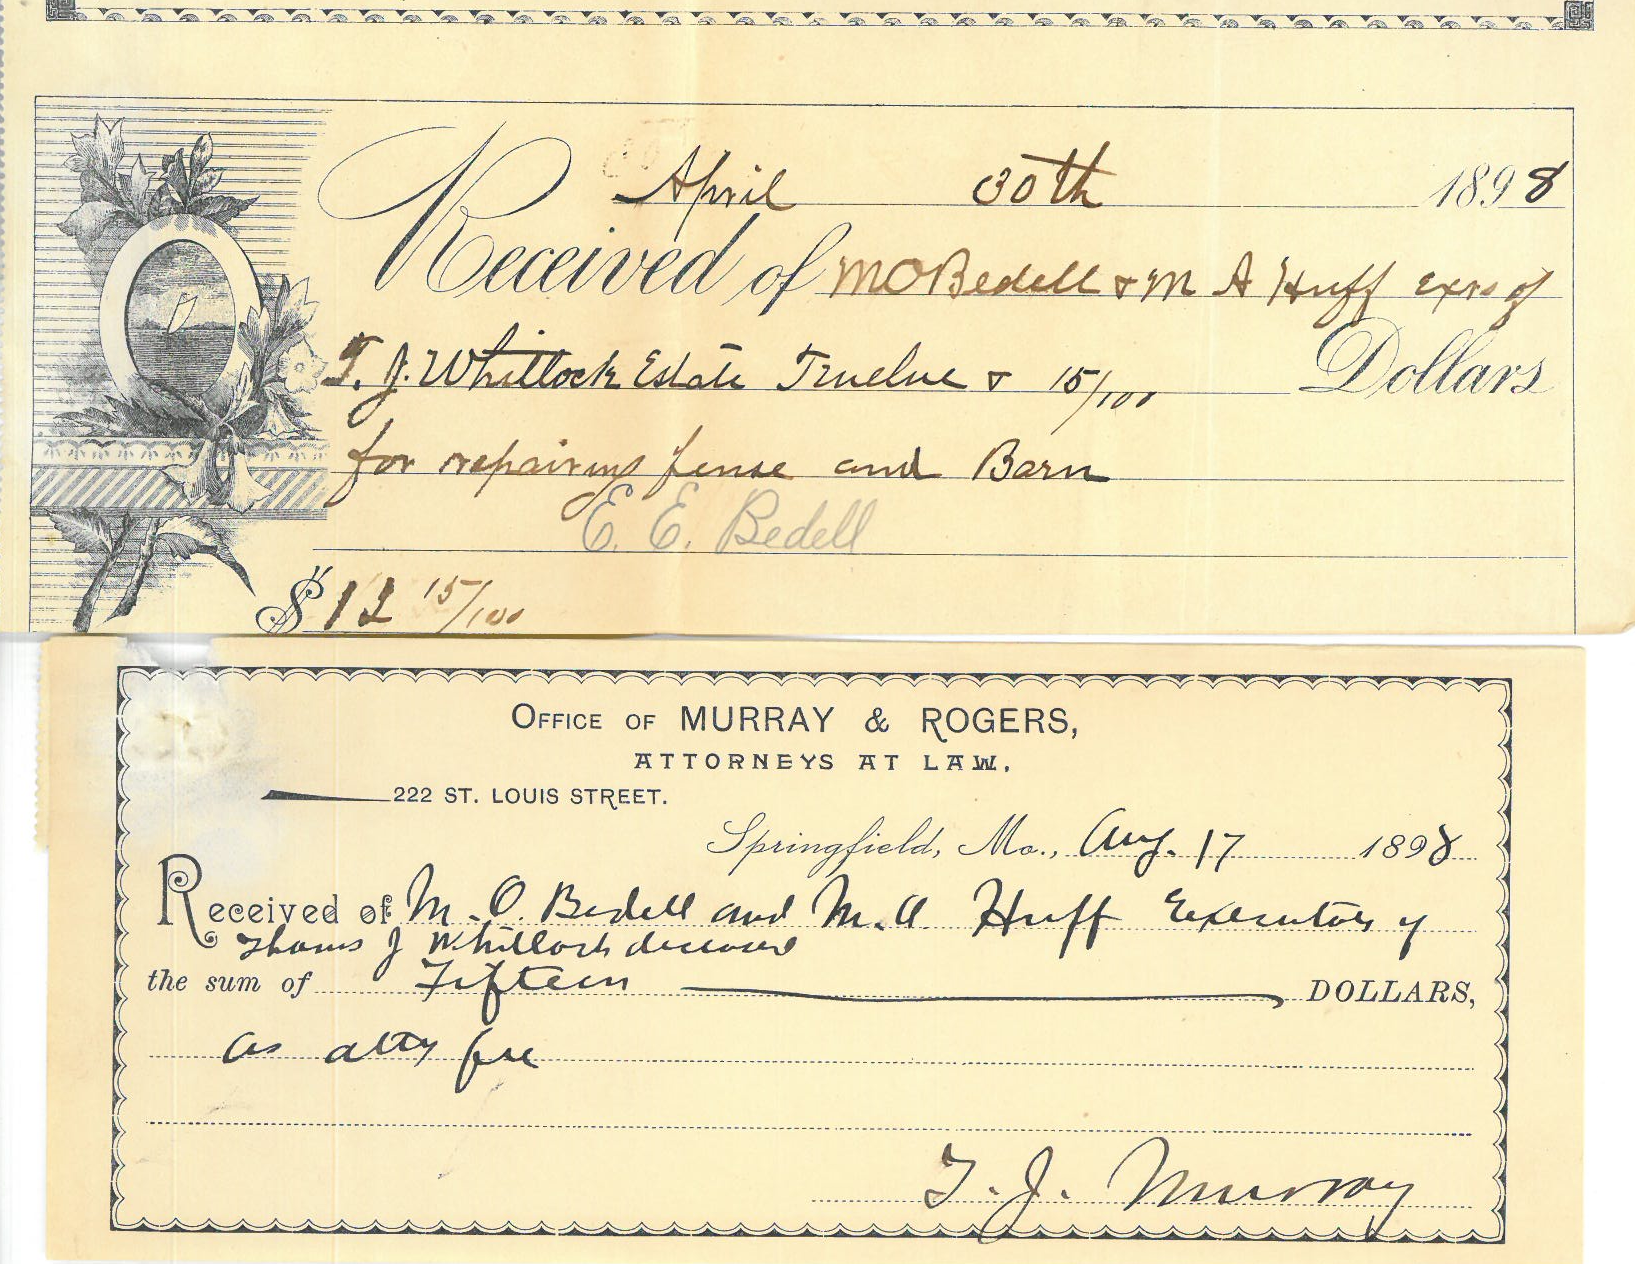 April 30th 1898
Received of M O Bedell & M A Huff exrs of
T. J. Whittlock Estate Twelve & 15/100 Dollars
for repairing fense and Barn
E. E. Bedell
$12 15/100
OFFICE OF MURRAY & ROGERS,
ATTORNEYS AT LAW,
222 ST. LOUIS STREET.
Springfield, Mo., Aug. 17 1898
Received of M. O. Bedell and M. A. Huff Executors of
Thomas J Whitlock deceased
the sum of Fifteen DOLLARS,
as atty fee
T. J. Murray